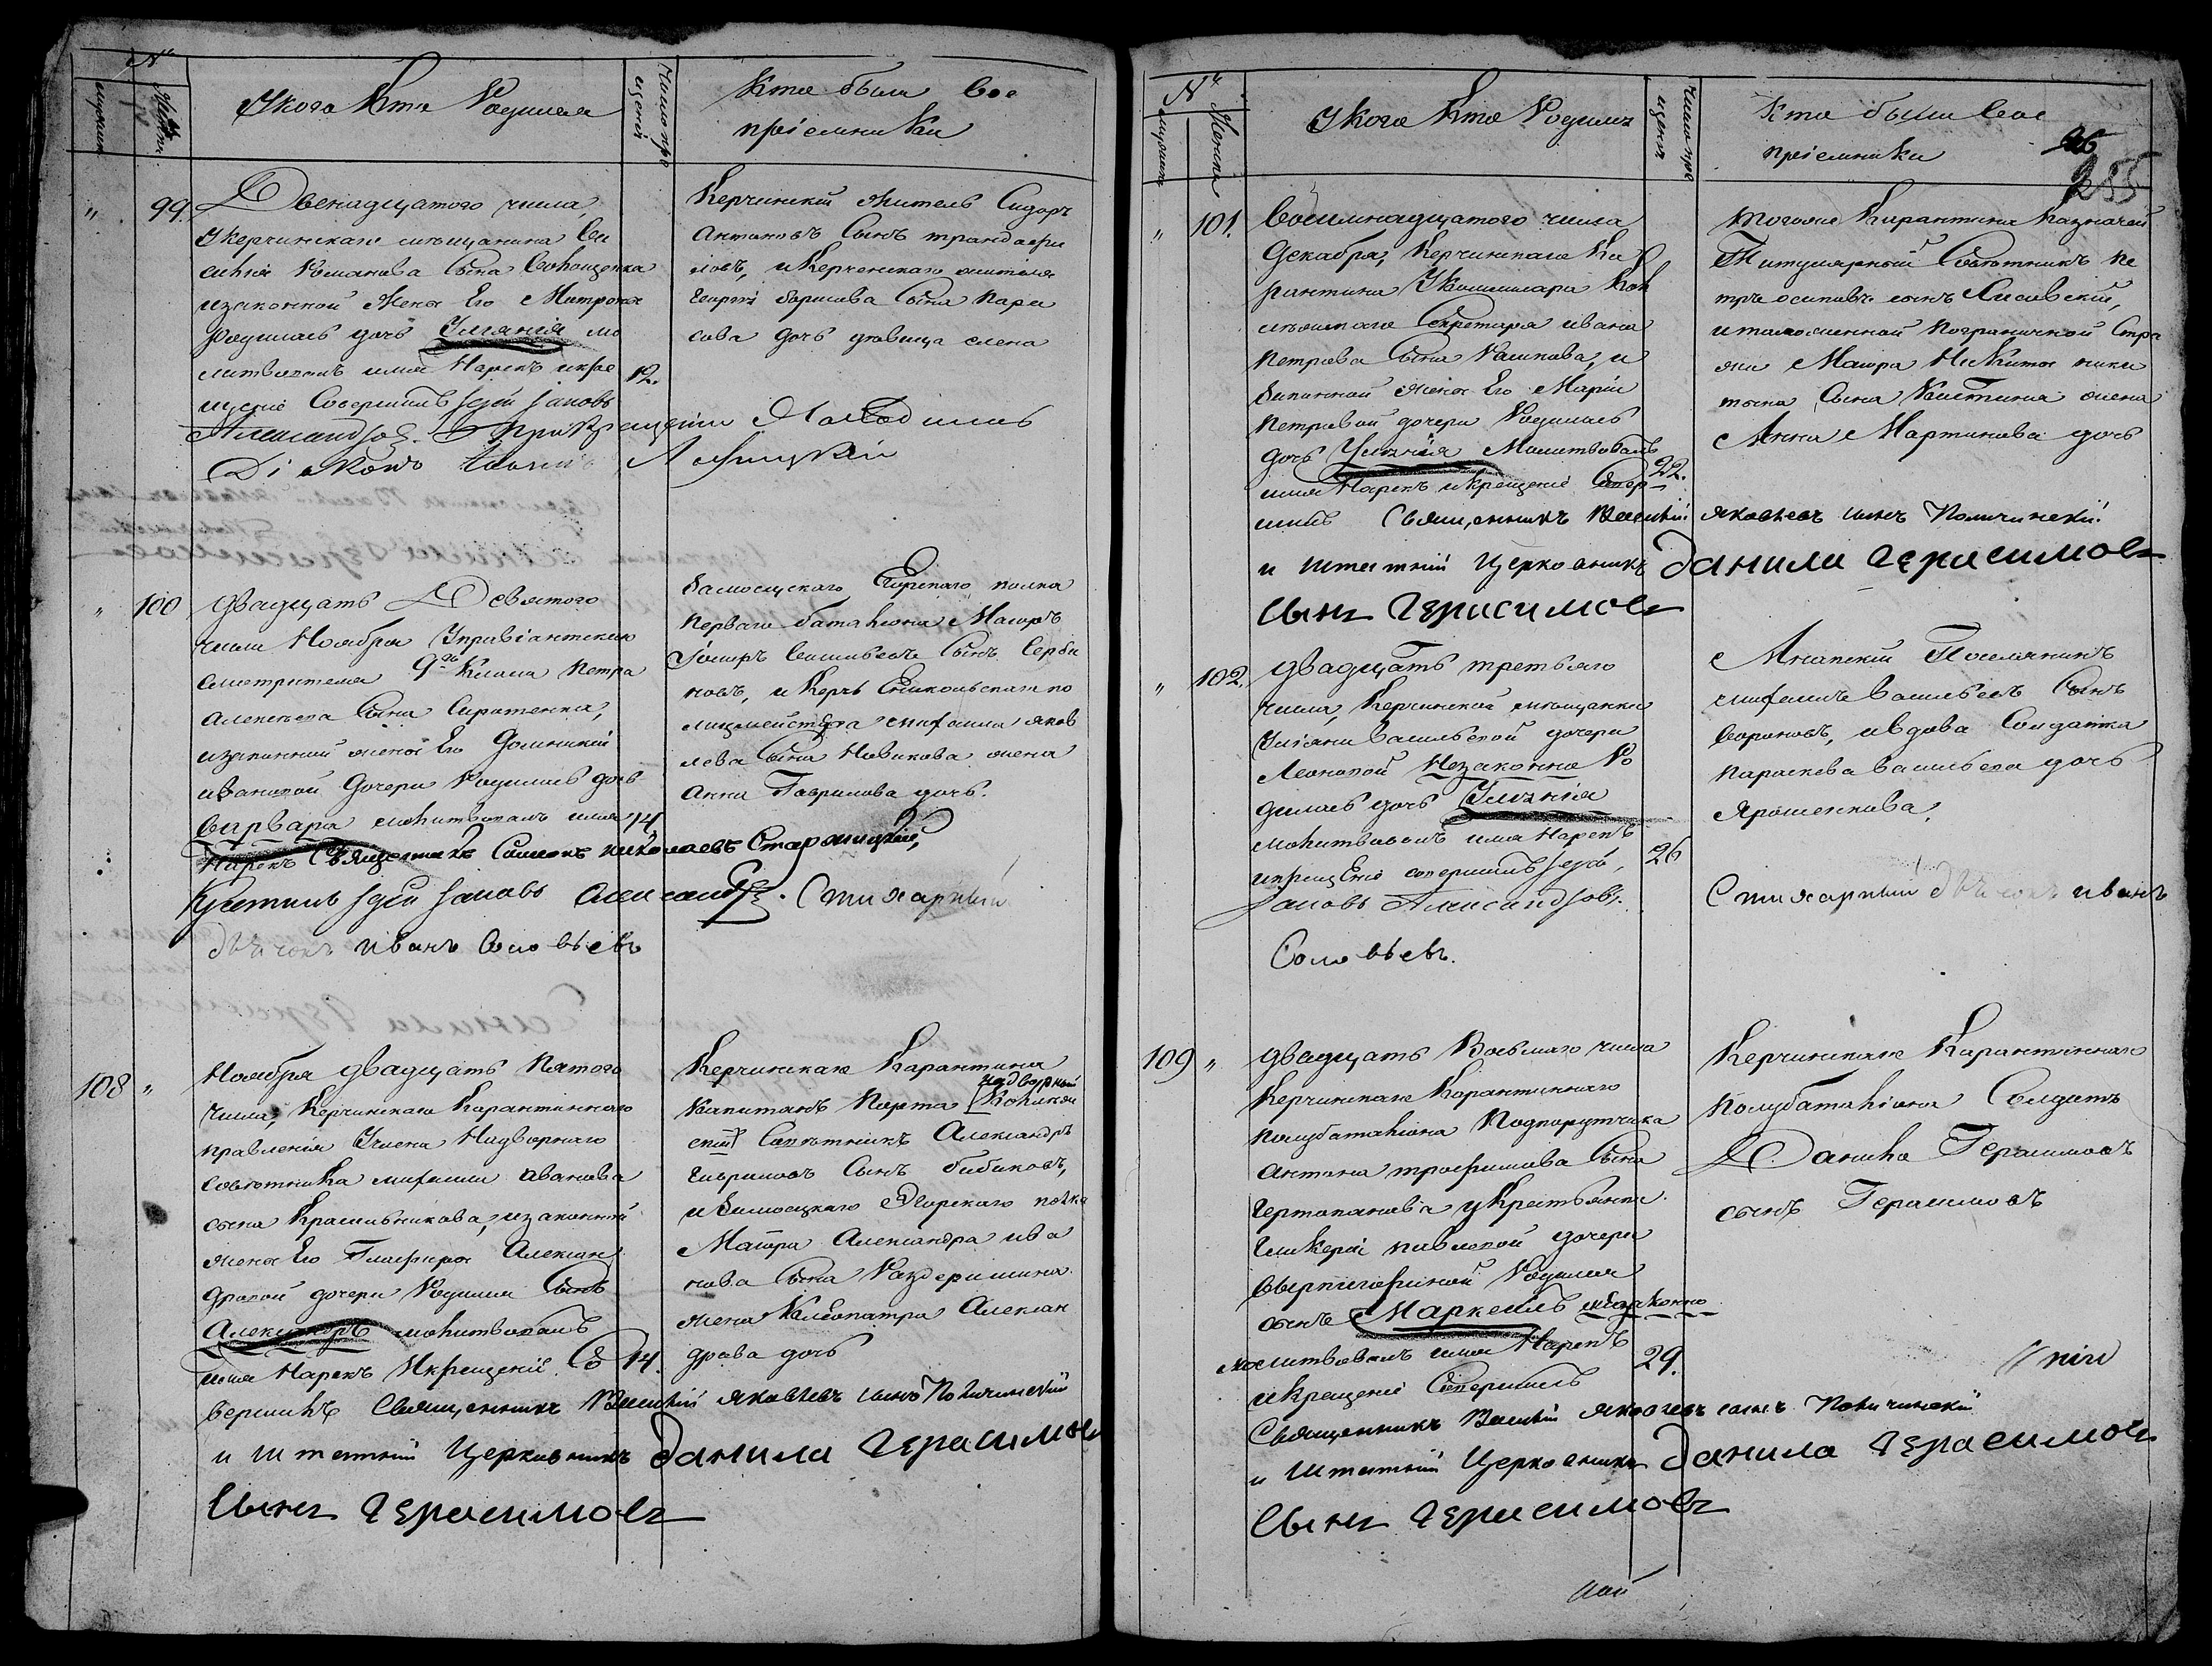 №
мужеска
женска
У кого кто родился
Число крещенiя
Кто были вос
прiемники
" 99. Двенадцатого числа,
У керчинскаго мещанина Ва
силiя Романова сына
изаконной жены Его Матроны
родилась дочь Улiянiя мо
литвовалъ имя Нарекъ икре
щенiе Совершилъ Iерей Iаковъ 12.
Александровъ. При Крещенiи Находился
Дiаконъ
Керчинскiй житель Сидоръ
Антоновъ Сынъ трандафи
ловъ, и Керченскаго жителя
Георгiя борисова Сына пари
сова дочь девица елена
" 100 двадцать Девятого
числа Ноября Упровiантскаго
смотрителя 9го Класа Петра
Алексеева Сына Сиротенка,
изаконной жены Его Доминикiи
ивановой Дочери Родилась дочь
Варвара молитвовалъ имя 14.
Нарекъ Священникъ Симеонъ николаевъ Старожицкiй,
Крестилъ Iерей Iаковъ Александровъ. Стихарный
дьячокъ иванъ Соловьевъ
Замосцскаго Егерскаго полка
перваго баталiона Маiоръ
Iосифъ Васильевъ Сынъ Серби
новъ, и Керчь Ениколскаго по
лицмейстера михаила яков
лева Сына Новикова жена
Анна Гаврилова дочь.
108 " Ноября двадцать Пятого
числа, Керчинскаго Карантиннаго
правленiя Члена Надворнаго
Советника михаила иванова
сына Красильникова, изаконной
жены Его Глафиры Алексан
дровой дочери Родился Сынъ
Александръ молитвовалъ
имя Нарекъ Икрещенiе Со 14.
вершилъ Священникъ Василiй яковлевъ сынъ Поличинскiй
и Штатнiй Церковникъ Данила Герасимовъ
Сынъ Герасимовъ
Керчинскаго Карантина
Капитанъ Порта надворный
Советникъ Александръ
Гавриловъ Сынъ бибиковъ,
и Замосцкаго Егерскаго полка
Маiора Александра ива
нова Сына жена Клеопатра Алексан
дрова дочь
№
мужеска
женска
У кого кто Родился
Число крещенiя
Кто были вос
прiемники
255
" 101. Восимнадцатого числа
Декабря, Керчинскаго Ка
рантина У Коммисара Кол
лежскаго Секретаря ивана
Петрова Сына Рашкова, и
Законной жены Его Марiи
Петровой дочери Родилась
дочь Улiянiя Молитвовалъ
имя Нарекъ икрещенiе Совер 22.
шилъ Священникъ Василiй яковлевъ сынъ Поличинскiй
и штатнiй Церковникъ Данила Герасимовъ
Сынъ Герасимовъ
Тогоже Карантина Казначей
Титулярный Советникъ пе
тръ осиповъ сынъ Лисовскiй,
и таможенной пограничной Стра
жи Маiора Никиты ники
тина Сына жена
Анна Мартинова дочь
" 102. двадцать третьяго
числа, Керчинской мещанки
Улiяни Васильевой дочери
Леоновой Незаконно Ро
дилась дочь Улiянiя
молитвовалъ имя Нарекъ
икрещенiе совершилъ Iерей, 26
Iаковъ Александровъ.
Соловьевъ.
Анапскiй Поселянинъ
михаилъ Васильевъ Сынъ
Вороновъ, ивдова Солдатка
параскева Васильева дочь
Ярошенкова,
Стихарный дьячокъ иванъ
109 " двадцать Восьмаго числа
Керчинскаго Карантиннаго
полубаталiона Подпорутчика
антона трофимова Сына
Чертопанова у Крестьянки
Гликерiи павловой дочери
Родился
сынъ Маркеилъ незаконно
молитвовалъ имя Нарекъ
икрещенiе Совершилъ 29.
Священникъ Василiй яковлевъ сынъ Поличинскiй
и Штатнiй Церковникъ Данила Герасимовъ
Сынъ Герасимовъ
Керчинскаго Карантиннаго
полубаталiона Солдатъ
Данило Герасимовъ
сынъ Герасимовъ